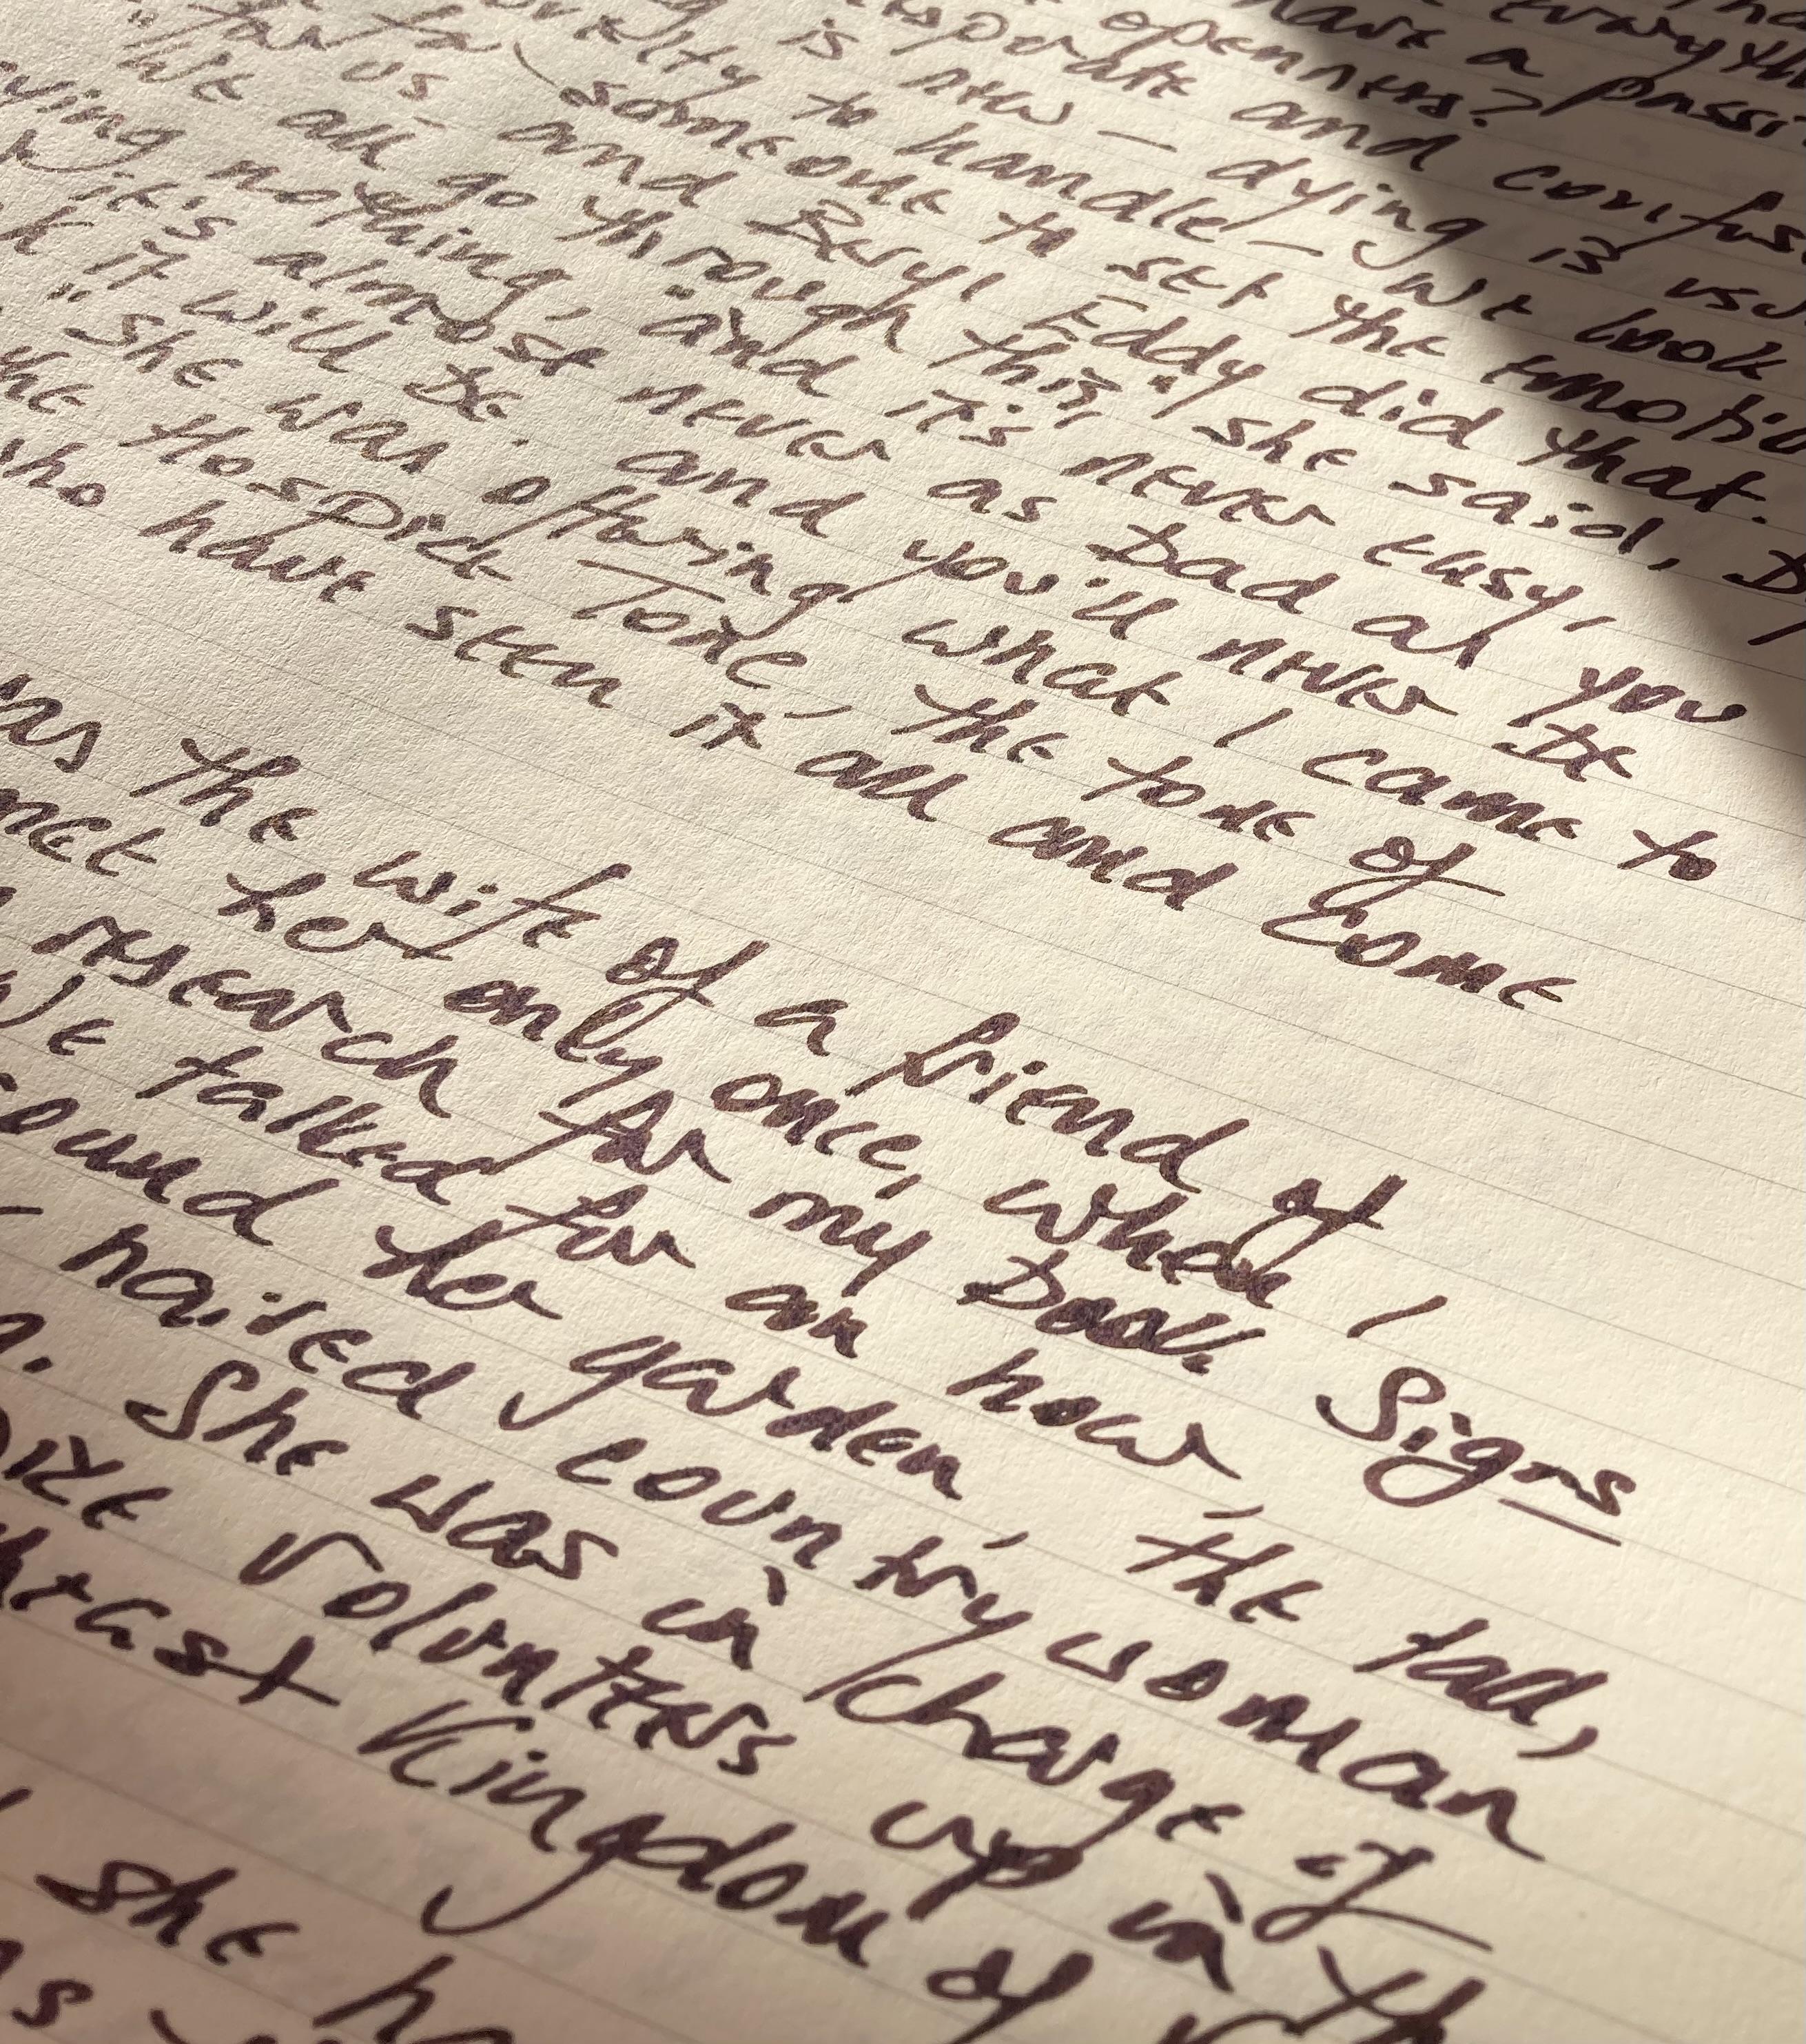 everyth
have a passi
openness?
and confus
is new — dying is usu
to handle — we look
someone to set the emotio
for us and Beryl Eddy did that.
"We all go through this," she said,
nothing, "and it's never easy,
it's almost never as bad as you
it will be. and you'll never be
" She was offering what I came to
the Hospice Tone, the tone of
who have seen it all and come
as the wife of a friend of
met her only once, when I
research for my book Signs
We talked for an hour,
ound her garden, the tall,
raised country woman
She was in charge of
volunteers up in th
heast Kingdom of
she h